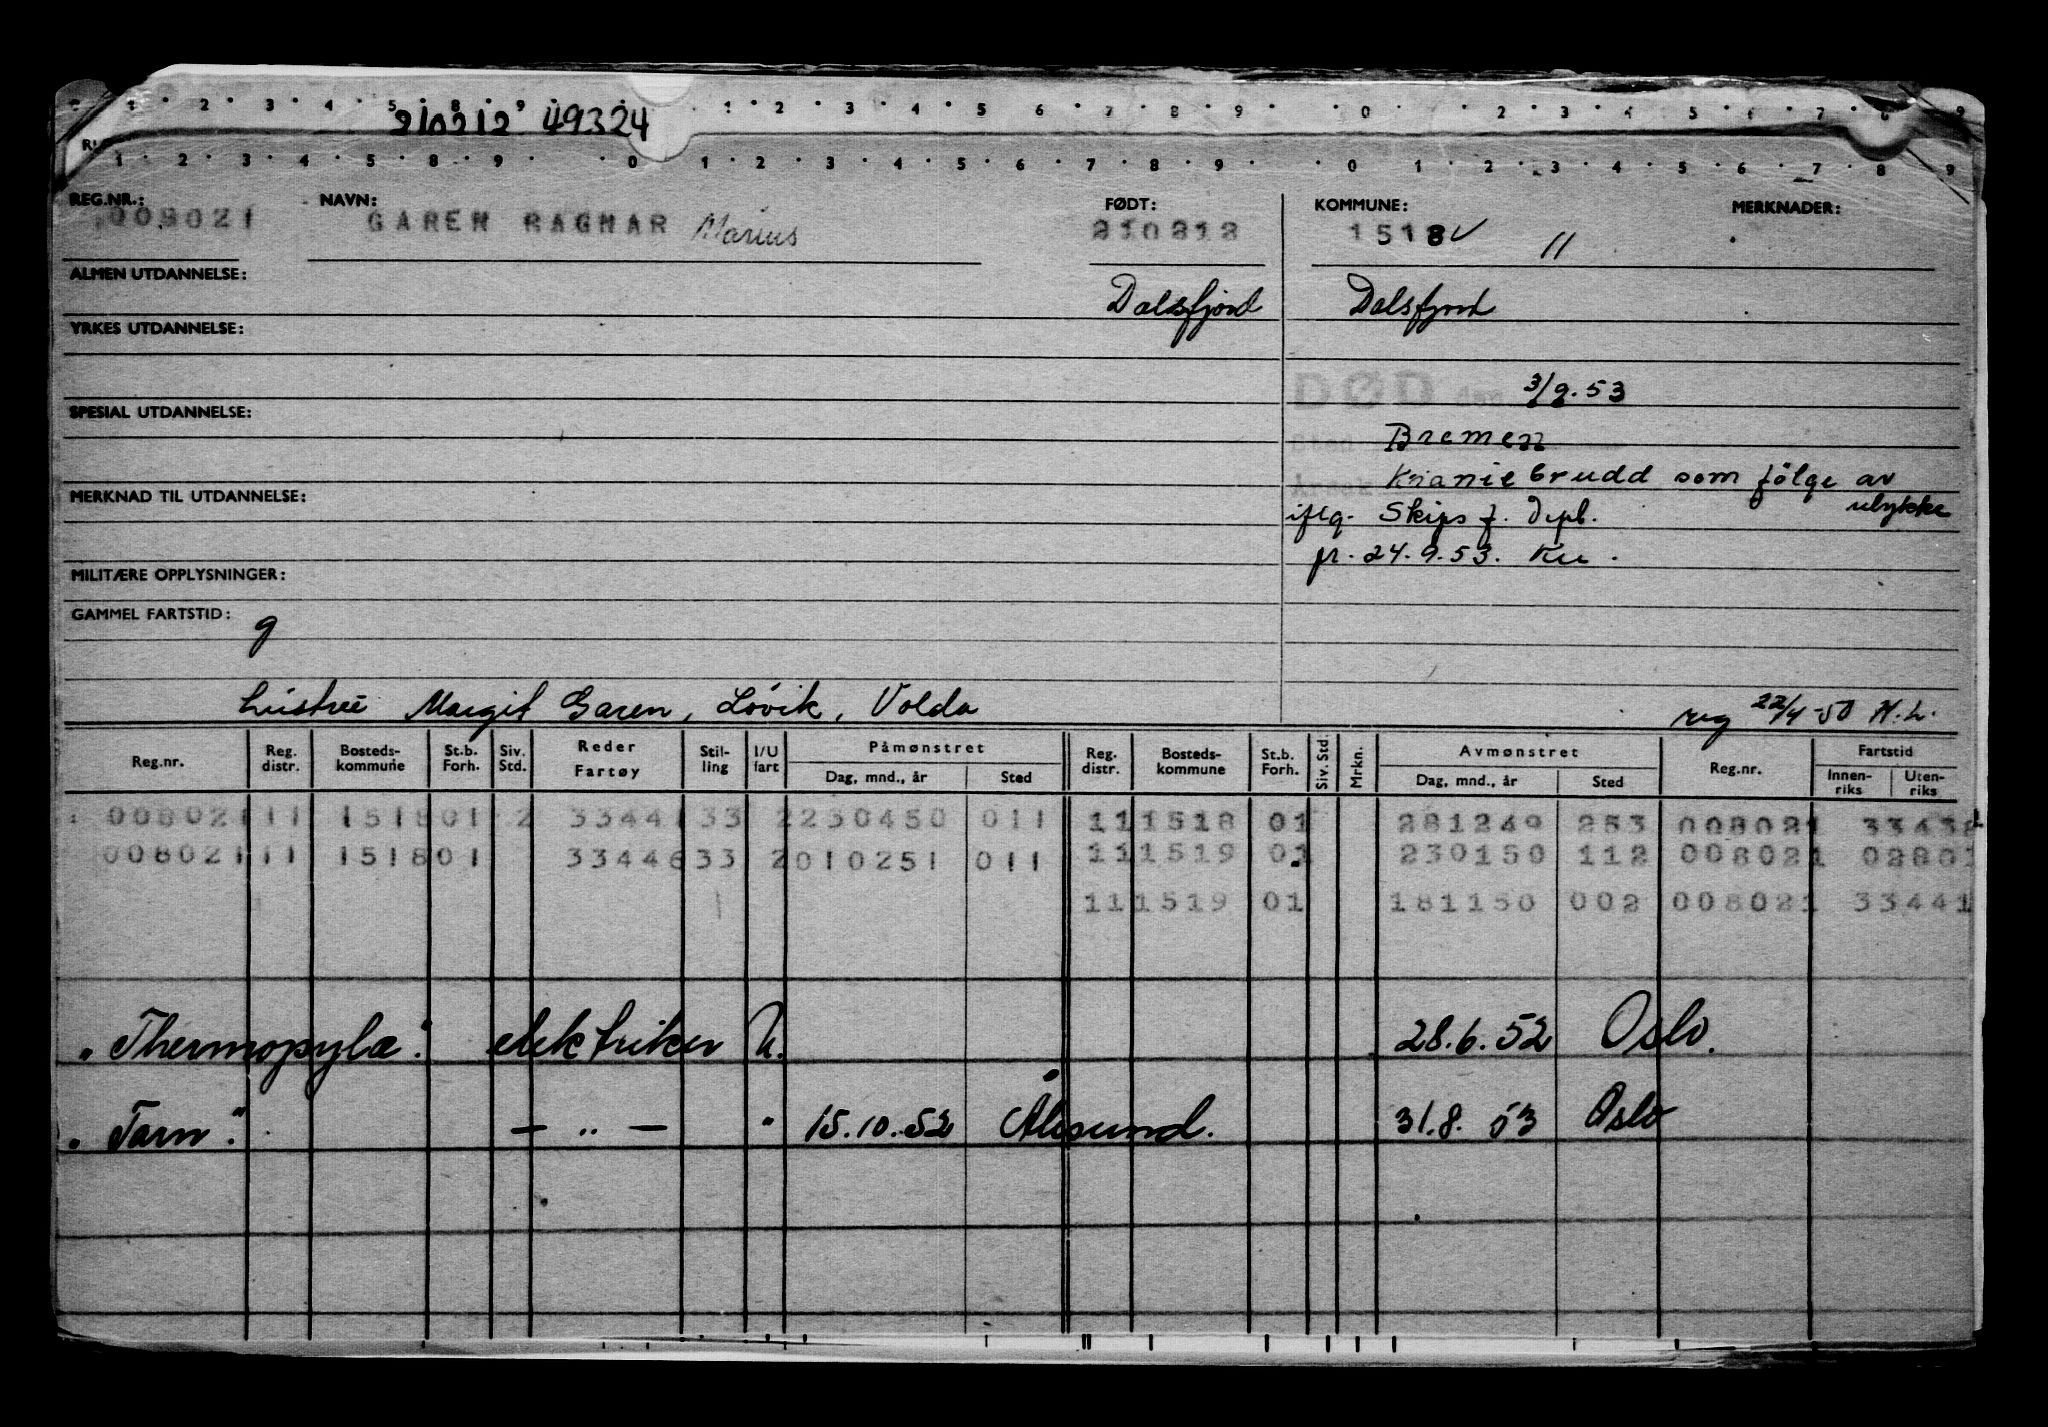 210212 49324
REG.NR.: NAVN: FØDT: KOMMUNE: MERKNADER:
008021 GAREN RAGNAR Marius 210212 1518 V 11
ALMEN UTDANNELSE: Dalsfjord Dalsfjord
YRKES UTDANNELSE:
DØD den 3/9.53
SPESIAL UTDANNELSE:
Sted Bremen
Årsak Kraniebrudd som følge av
MERKNAD TIL UTDANNELSE:
iflg. Skips f. Depl. ulykke
fr. 24.9.53. Ku.
MILITÆRE OPPLYSNINGER:
GAMMEL FARTSTID: g
hustru Margit Garen, Løvik, Volda reg 22/4-50 H.L.
Reg.nr. Reg. distr. Bosteds-kommune St.b. Forh. Siv. Std. Reder Fartøy Stil-ling I/U fart Påmønstret Dag, mnd., år Sted Reg. distr. Bosteds-kommune St.b. Forh. Siv. Std. Mrkn. Avmønstret Dag, mnd., år Sted Reg.nr. Fartstid Innen-riks Uten-riks
008021 11 1518 01 2 33441 33 2 230450 011 11 1518 01 281249 253 008021 33438
008021 11 1518 01 33446 33 2 010251 011 11 1519 01 230150 112 008021 02801
11 1519 01 181150 002 008021 33441
"Thermopylæ". elektriker U. 28.6.52 Oslo.
"Tarn". — " — " 15.10.52 Ålesund. 31.8.53 Oslo